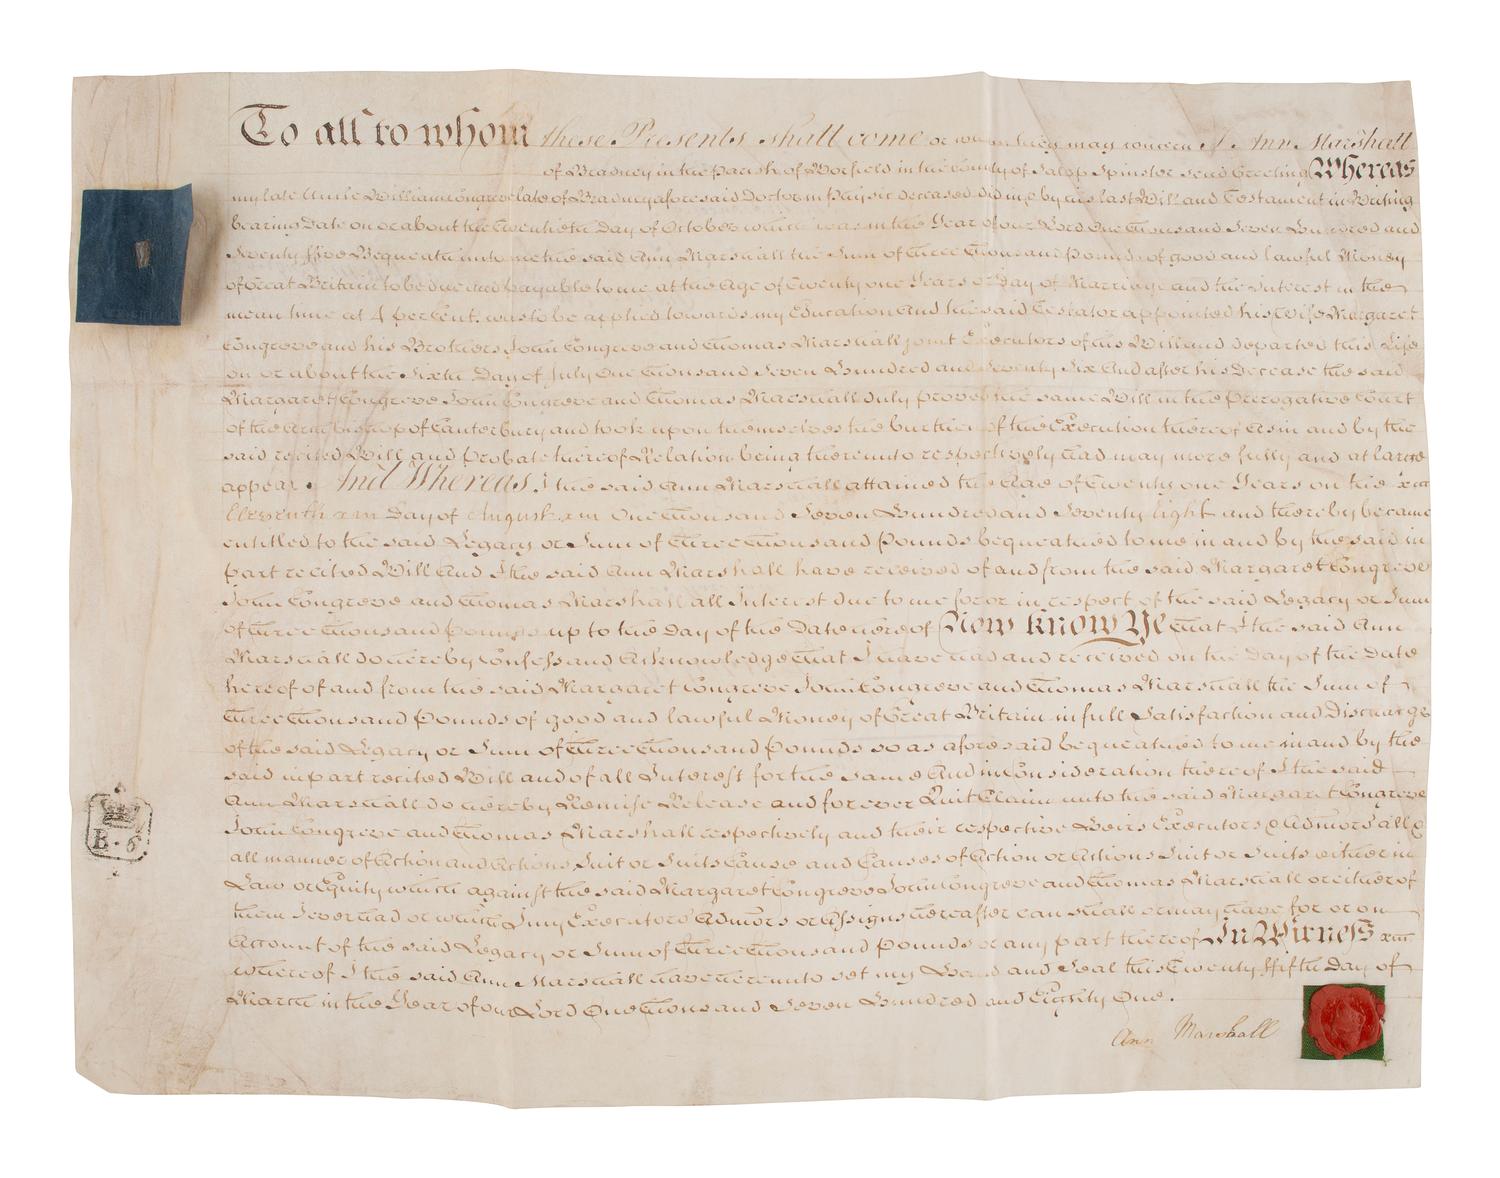 To all to whom these Presents shall come or whom they may concern I Ann Marshall
of Bradney in the Parish of Worfield in the County of Salop Spinster send Greeting Whereas
my late Uncle William Congreve late of Bradney aforesaid Doctor in Physic deceased did in & by his last Will and Testament in Writing
bearing Date on or about the twentieth Day of October which was in the Year of our Lord One thousand Seven Hundred and
Seventy ffive Bequeath unto me the said Ann Marshall the Sum of Three Thousand Pounds of good and lawful Money
of Great Britain to be due and payable to me at the Age of twenty one Years or Day of Marriage and the Interest in the
mean time at 4 per Cent. was to be applied towards my Education And the said Testator appointed his Wife Margaret
Congreve and his Brothers John Congreve and Thomas Marshall joint Executors of his Will and departed this Life
on or about the Sixth Day of July One thousand Seven Hundred and Seventy Six And after his Decease the said
Margaret Congreve John Congreve and Thomas Marshall duly proved the same Will in the Prerogative Court
of the Archbishop of Canterbury and took upon themselves the burthen of the Execution thereof As in and by the
said recited Will and Probate thereof Relation being thereunto respectively had may more fully and at large
appear. And Whereas I the said Ann Marshall attained the Age of Twenty one Years on the
Eleventh Day of August One thousand Seven Hundred and Seventy Eight and thereby became
entitled to the said Legacy or Sum of Three thousand Pounds bequeathed to me in and by the said in
part recited Will And I the said Ann Marshall have received of and from the said Margaret Congreve
John Congreve and Thomas Marshall all Interest due to me for or in respect of the said Legacy or Sum
of Three thousand Pounds up to the Day of the Date hereof Now Know Ye that I the said Ann
Marshall do hereby Confess and Acknowledge that I have had and received on the Day of the Date
hereof of and from the said Margaret Congreve John Congreve and Thomas Marshall the Sum of
Three thousand Pounds of good and lawful Money of Great Britain in full Satisfaction and Discharge
of the said Legacy or Sum of Three thousand Pounds so as aforesaid bequeathed to me in and by the
said in part recited Will and of all Interest for the same And in Consideration thereof I the said
Ann Marshall do hereby Remise Release and for ever Quit Claim unto the said Margaret Congreve
John Congreve and Thomas Marshall respectively and their respective Heirs Executors & Admors all &
all manner of Action and Actions Suit or Suits Cause and Causes of Action or Actions Suit or Suits either in
Law or Equity which against the said Margaret Congreve John Congreve and Thomas Marshall or either of
them I ever had or which I my Executors Admors or Assigns hereafter can shall or may have for or on
Account of the said Legacy or Sum of Three thousand Pounds or any part thereof In Witness
whereof I the said Ann Marshall have hereunto set my Hand and Seal this Twenty ffifth Day of
March in the Year of our Lord One thousand Seven Hundred and Eighty One.
Ann Marshall
B·6